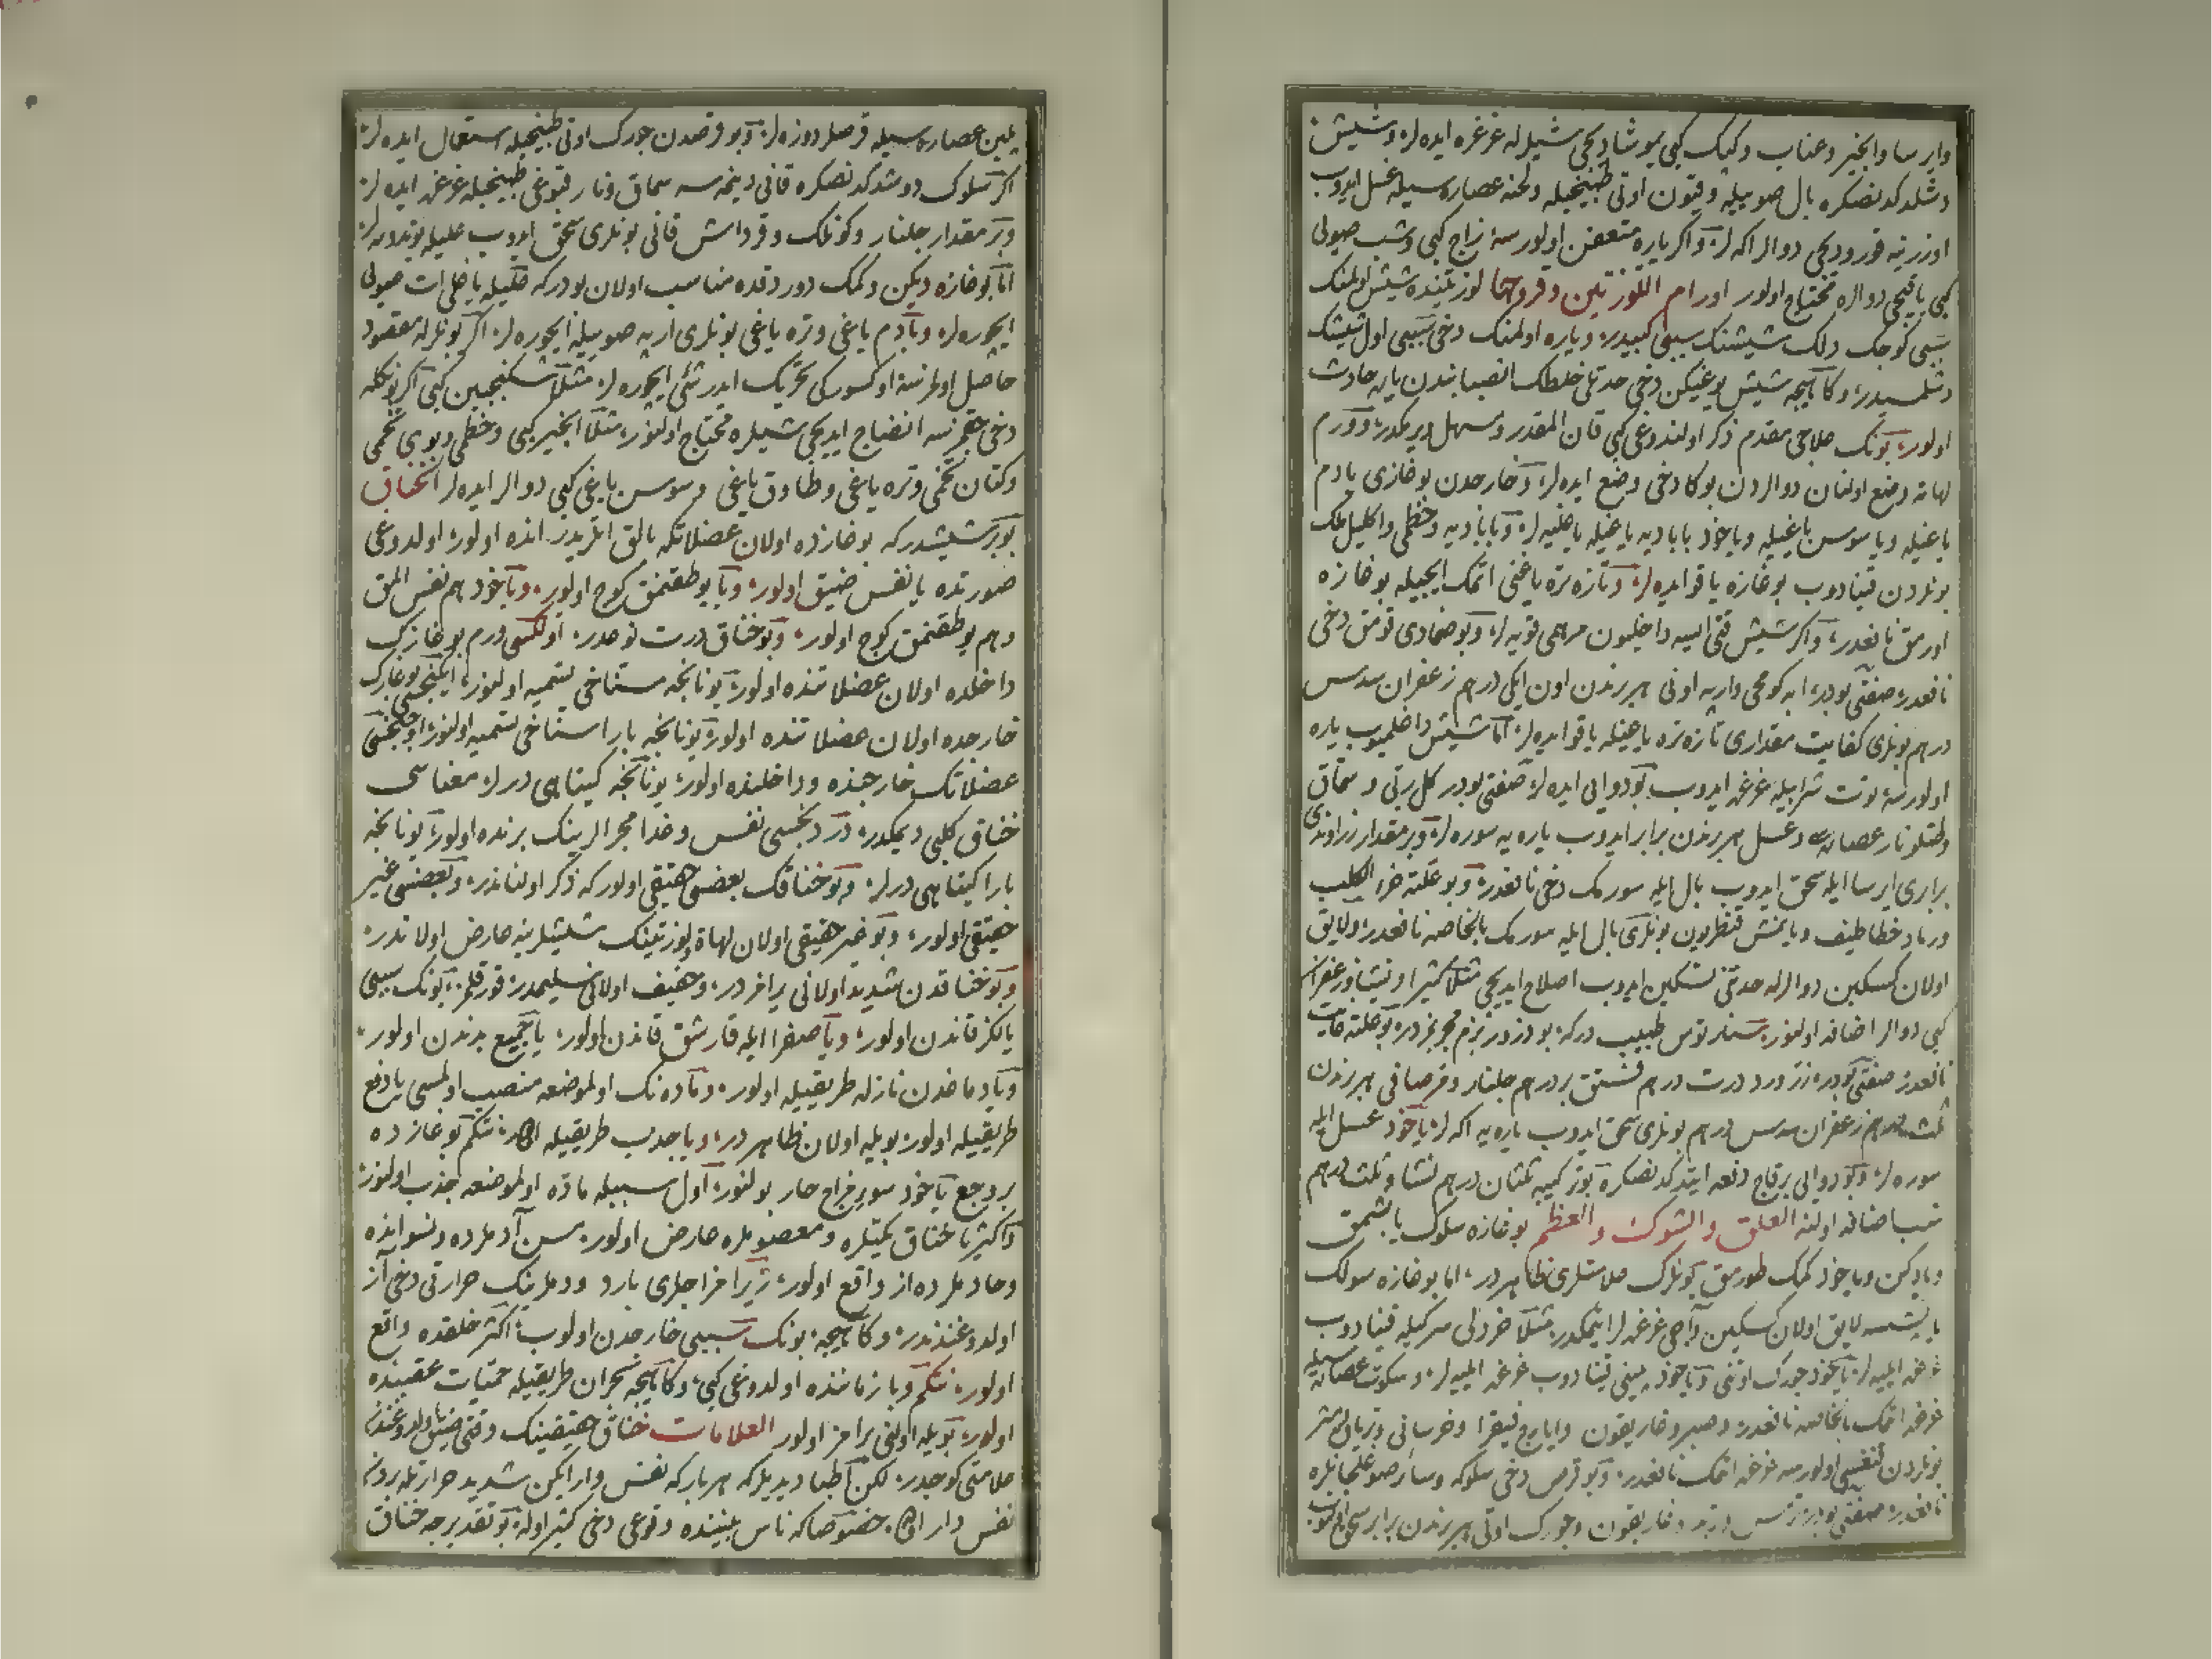 وایرسا وانجیر وعناب وکپک کبی یومشادیجی شیلرله غرغره ایده لر وشیش
دشلدکدنصکره بال صوییله وقیون اوتی طبیخیله ولحنه عصاره سیله غسل ایدوب
اوزرینه قورودیجی دوالر اکه لر واکر یاره متعفن اولورسه زاج کبی وشب صولی
کبی یاقیجی دوالره محتاج اولور اورام اللوزتین وقروحها لوزتینده شیش اولمنک
سببی کوچک دلک شیشنک سببی کبیدر ویاره اولمنک دخی سببی اول شیشک
دشلمسیدر وکاهیجه شیش یوغیکن دخی حدتلی خلطک انصبابندن یاره حادث
اولور بونک علاجی مقدم ذکر اولندوغی کبی قان المقدر ومسهل ویرمکدر وورم
لهاته وضع اولنان دوالردن بوکا دخی وضع ایده لر وخارجدن بوغازی بادم
یاغیله ویا سوسن یاغیله ویاخود بابادیه یاغیله یاغلیه لر وبابادیه وخطمی واکلیل ملک
بونلردن قینادوب بوغازه یاقو ایده لر وتازه تره یاغنی اتمک ایچیله بوغازه
اورمق نافعدر واکر شیش قتی ایسه داخلیون مرهمی قویه لر وبو ضمادی قومق دخی
نافعدر صفتی بودر ابه کومجی واربه اونی هر برندن اون ایکی درهم زعفران سدس
درهم بونلری کفایت مقداری تازه تره یاغیله یاقو ایده لر اما شیش داخلیوب یاره
اولورسه توت شرابیله غرغره ایدوب بو دوایی ایده لر صفتی بودر کل برتی وسماق
وطتلو نار عصاره سی وعسل هر برندن برابر ایدوب یاره یه سوره لر وبر مقدار زراوندی
براری ایرسا ایله سحق ایدوب بال ایله سورمک دخی نافعدر وبو علته خرء الکلب
ورماد خطاطیف ویانمش قنطریون بونلری بال ایله سورمک بالخاصه نافعدر ولایق
اولان کسکین دوالرله حدتنی تسکین ایدوب اصلاح ایدیجی مثلا کثیرا ونشا وزعفران
کبی دوالر اضافه اولنور سندرتوس طبیب درکه بو ذرور بزم مجربمزدر بو علته غایت
نافعدر صفتی بودر زر ورد درت درهم فستق بر درهم جلنار وقرصافی هر برندن
ثلث درهم زعفران سدس درهم بونلری سحق ایدوب یاره یه اکه لر یاخود عسل ایله
سوره لر وبو دوایی برقاچ دفعه ایتدکدنصکره بو ترکیبه ثلثان درهم نشا وثلث درهم
شب اضافه اولنه العلق والشوک والعظم بوغازه سلوک یاپشمق
ویا دکن ویاخود کمک طورمق بونلرک علامتلری ظاهردر اما بوغازه سولک
یاپشسه لایق اولان کسکین وآجی غرغره لر ایتمکدر مثلا خردلی سرکیله قینادوب
غرغره ایلیه لر یاخود چورک اوتنی ویاخود پلینی قینادوب غرغره ایلیه لر وسکوت عصاره سیله
غرغره اتمک بالخاصه نافعدر وصبر وغاریقون وایارج فیقرا وخرسانی وتریاق
بونلردن قنغیسی اولورسه غرغره اتمک نافعدر وبو قرص دخی سلوکه وسائر صوغلجانلره
نافعدر صفتی بودر ترمس وترید وغاریقون وچورک اوتی هر برندن برابر سحق اولنوب
پلین عصاره سیله قرصلر دوزه لر وبو قرصدن چورک اوتی طبیخیله استعمال ایده لر
اکر سلوک دوشدکدنصکره قانی دینمه سه سماق ونار قبوغی طبیخیله غرغره ایده لر
وبر مقدار جلنار وکونلک وقرداش قانی بونلری سحق ایدوب عسلیله یوتدره لر
اما بوغازه دیکن وکمک دوردقده مناسب اولان بودرکه صکیله یاغلی ات صویی
ایچوره لر وبادم یاغی وتره یاغی بونلری اربه صوییله ایچوره لر اکر بونلرله مقصود
حاصل اولمزسه اوکسورکی تحریک ایدر شئی ایچوره لر مثلا سکنجبین کبی اکر بونکله
دخی چقمزسه انضاج ایدیجی شیلره محتاج اولنور مثلا انجیر کبی وخطمی وبوی تخمی
وکتان تخمی وتره یاغی وطاوق یاغی وسوسن یاغی کبی دوالر ایده لر الخناق
بو بر شیشدرکه بوغازده اولان عضلاتکه یالق اتلریدر انده اولور اولدوغی
صورتده یا نفس ضیق اولور ویا یوطقنمق کوج اولور ویاخود هم نفس المق
وهم یوطقنمق کوج اولور وبو خناق درت نوعدر اولکسی ورم بوغازک
داخلده اولان عضلاتنده اولور یونانجه سناخی تسمیه اولنور ایکنجیسی بوغازک
خارجده اولان عضلاتنده اولور یونانجه پاراسناخی تسمیه اولنور اوچنجیسی
عضلاتک خارجنده وداخلنده اولور یونانجه کیناهی درلر معناسی
خناق کلبی دیمکدر دردنجیسی نفس وغدا مجرالرینک برنده اولور یونانجه
پاراکیناهی درلر وبو خناقک بعضی حقیقی اولورکه ذکر اولناندر وبعضسی غیر
حقیقی اولور وبو غیر حقیقی اولان لهاة ولوزتینک شیشلرینه عارض اولاندر
وبو خناقدن شدید اولانی یرامزدر وخفیف اولانی سلیمدر قورقلمز بونک سببی
یالکز قاندن اولور ویا صفرا ایله قارشق قاندن اولور یا جمیع بدندن اولور
ویا دماغدن نازله طریقیله اولور وماده نک اولموضعه منصب اولمسی یا دفع
طریقیله اولور بویله اولان ظاهردر ویا جذب طریقیله اولور نتکم بوغازده
بر وجع یاخود سوء مزاج حار بولنور اول سببیله ماده اولموضعه جذب اولنور
واکثریا خناق یکتلره ومعصوملره عارض اولور مسن آدملرده ونسوانده
وخادملرده از واقع اولور زیرا مزاجلری بارد ودملرینک حرارتی دخی آز
اولدوغندندر وکاهیجه بونک سببی خارجدن اولوب اکثر خلقده واقع
اولور نتکم وبا زماننده اولدوغی کبی وکاهیجه بحران طریقیله حمیات عقبنده
اولور بویله اولنی یرامز اولور العلامات خناق حقیقینک وقتی ضیق اولدوغنده
علامتی کوجدر لکن اطبا دیدیلرکه هر بارکه نفس وار ایکن شدید حرارتله بردن
نفس دار اوله خصوصاکه ناس بیننده وقوعی دخی کثیر اوله بو تقدیرجه خناق